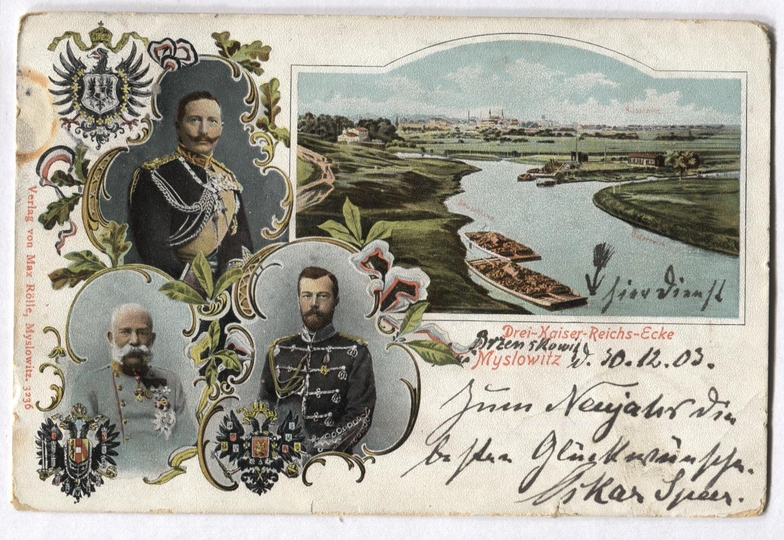 Verlag von Max Rölle, Myslowitz. 3236
hier dienst
Drei-Kaiser-Reichs-Ecke
Myslowitz d. 30.12.03.
Zum Neujahr die
besten Glückwünsche.
Oskar Speer.